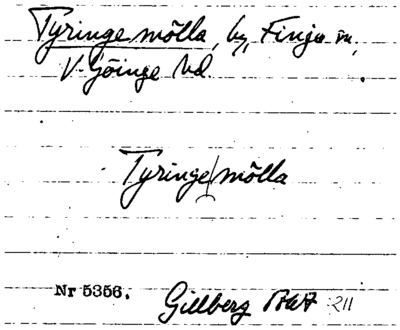 Tyringe mölla, by, Finja sn,
V. Göinge hd.
Tyringe mölla
Nr 5356. Gillberg 211